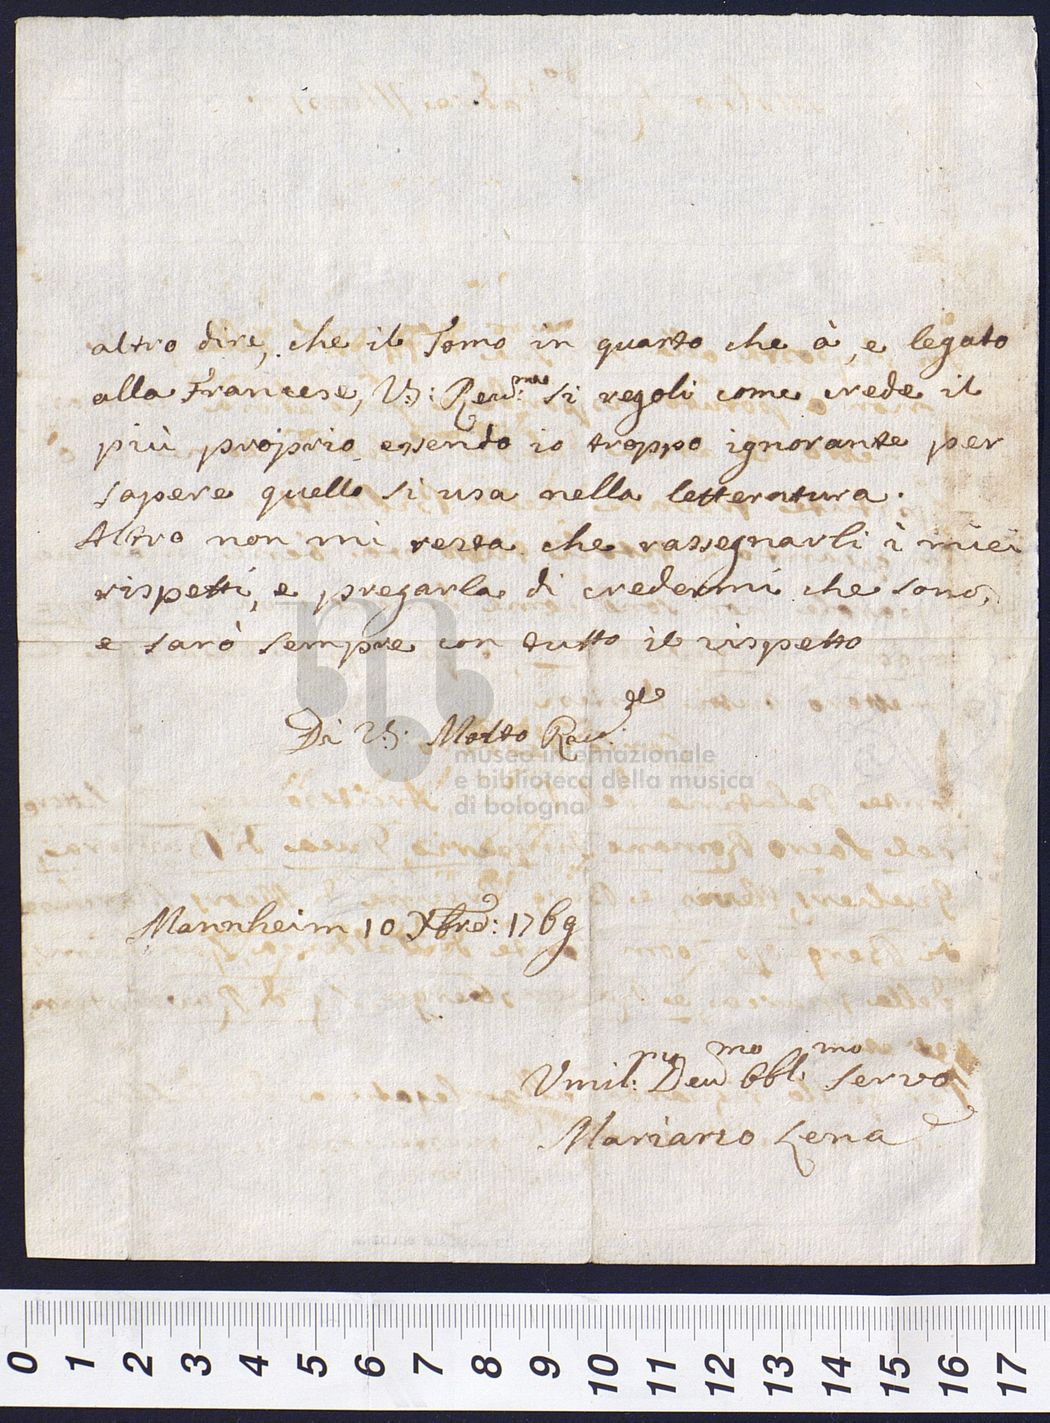 altro dire, che il Tomo in quarto che à, e legato
alla Francese, V.S: Reu:ma si regoli come crede il
più proprio essendo io troppo ignorante per
sapere quello si usa nella letteratura.
Altro non mi resta che rassegnarli i miei
rispetti, e pregarla di credermi che sono,
e sarò sempre con tutto il rispetto
Di V.S. Molto Reu:
museo internazionale
e biblioteca della musica
di bologna
Mannheim 10 Xbre: 1769
Vmil: Deu obbl: servo
Mariano Lena
0 1 2 3 4 5 6 7 8 9 10 11 12 13 14 15 16 17